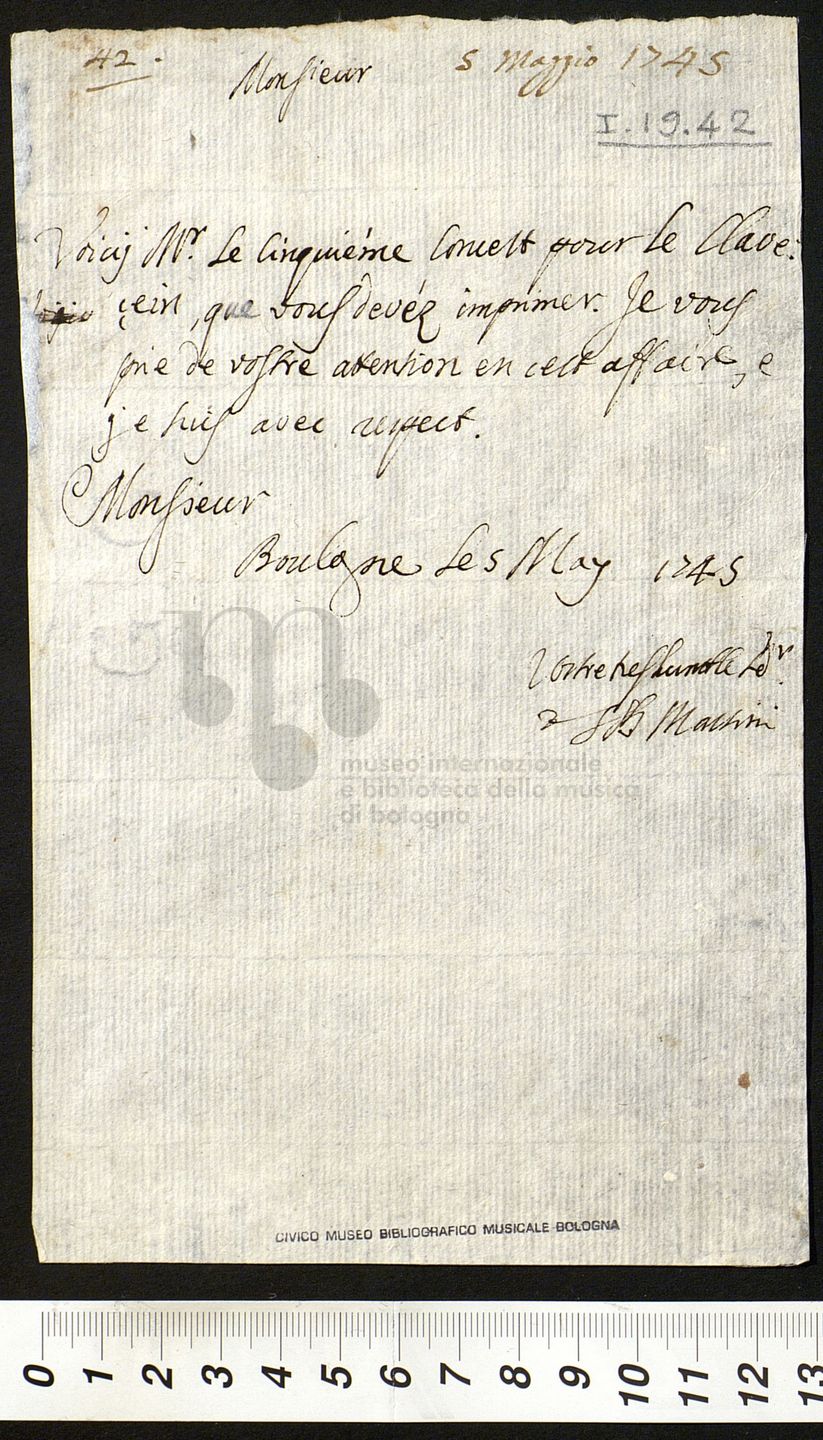 42. Monsieur 5 Maggio 1745
I.19.42
Voicij Mr. Le Cinquiéme Concert pour Le Clave:
çein, que vous devéz imprimer. Je vous
prie de vostre attention en cect affaire, e
je suis avec respect.
Monsieur
Boulogne Le 5 May 1745
Vostre tres humble
Martini
museo internazionale
e biblioteca della musica
di bologna
CIVICO MUSEO BIBLIOGRAFICO MUSICALE BOLOGNA
0 1 2 3 4 5 6 7 8 9 10 11 12 13